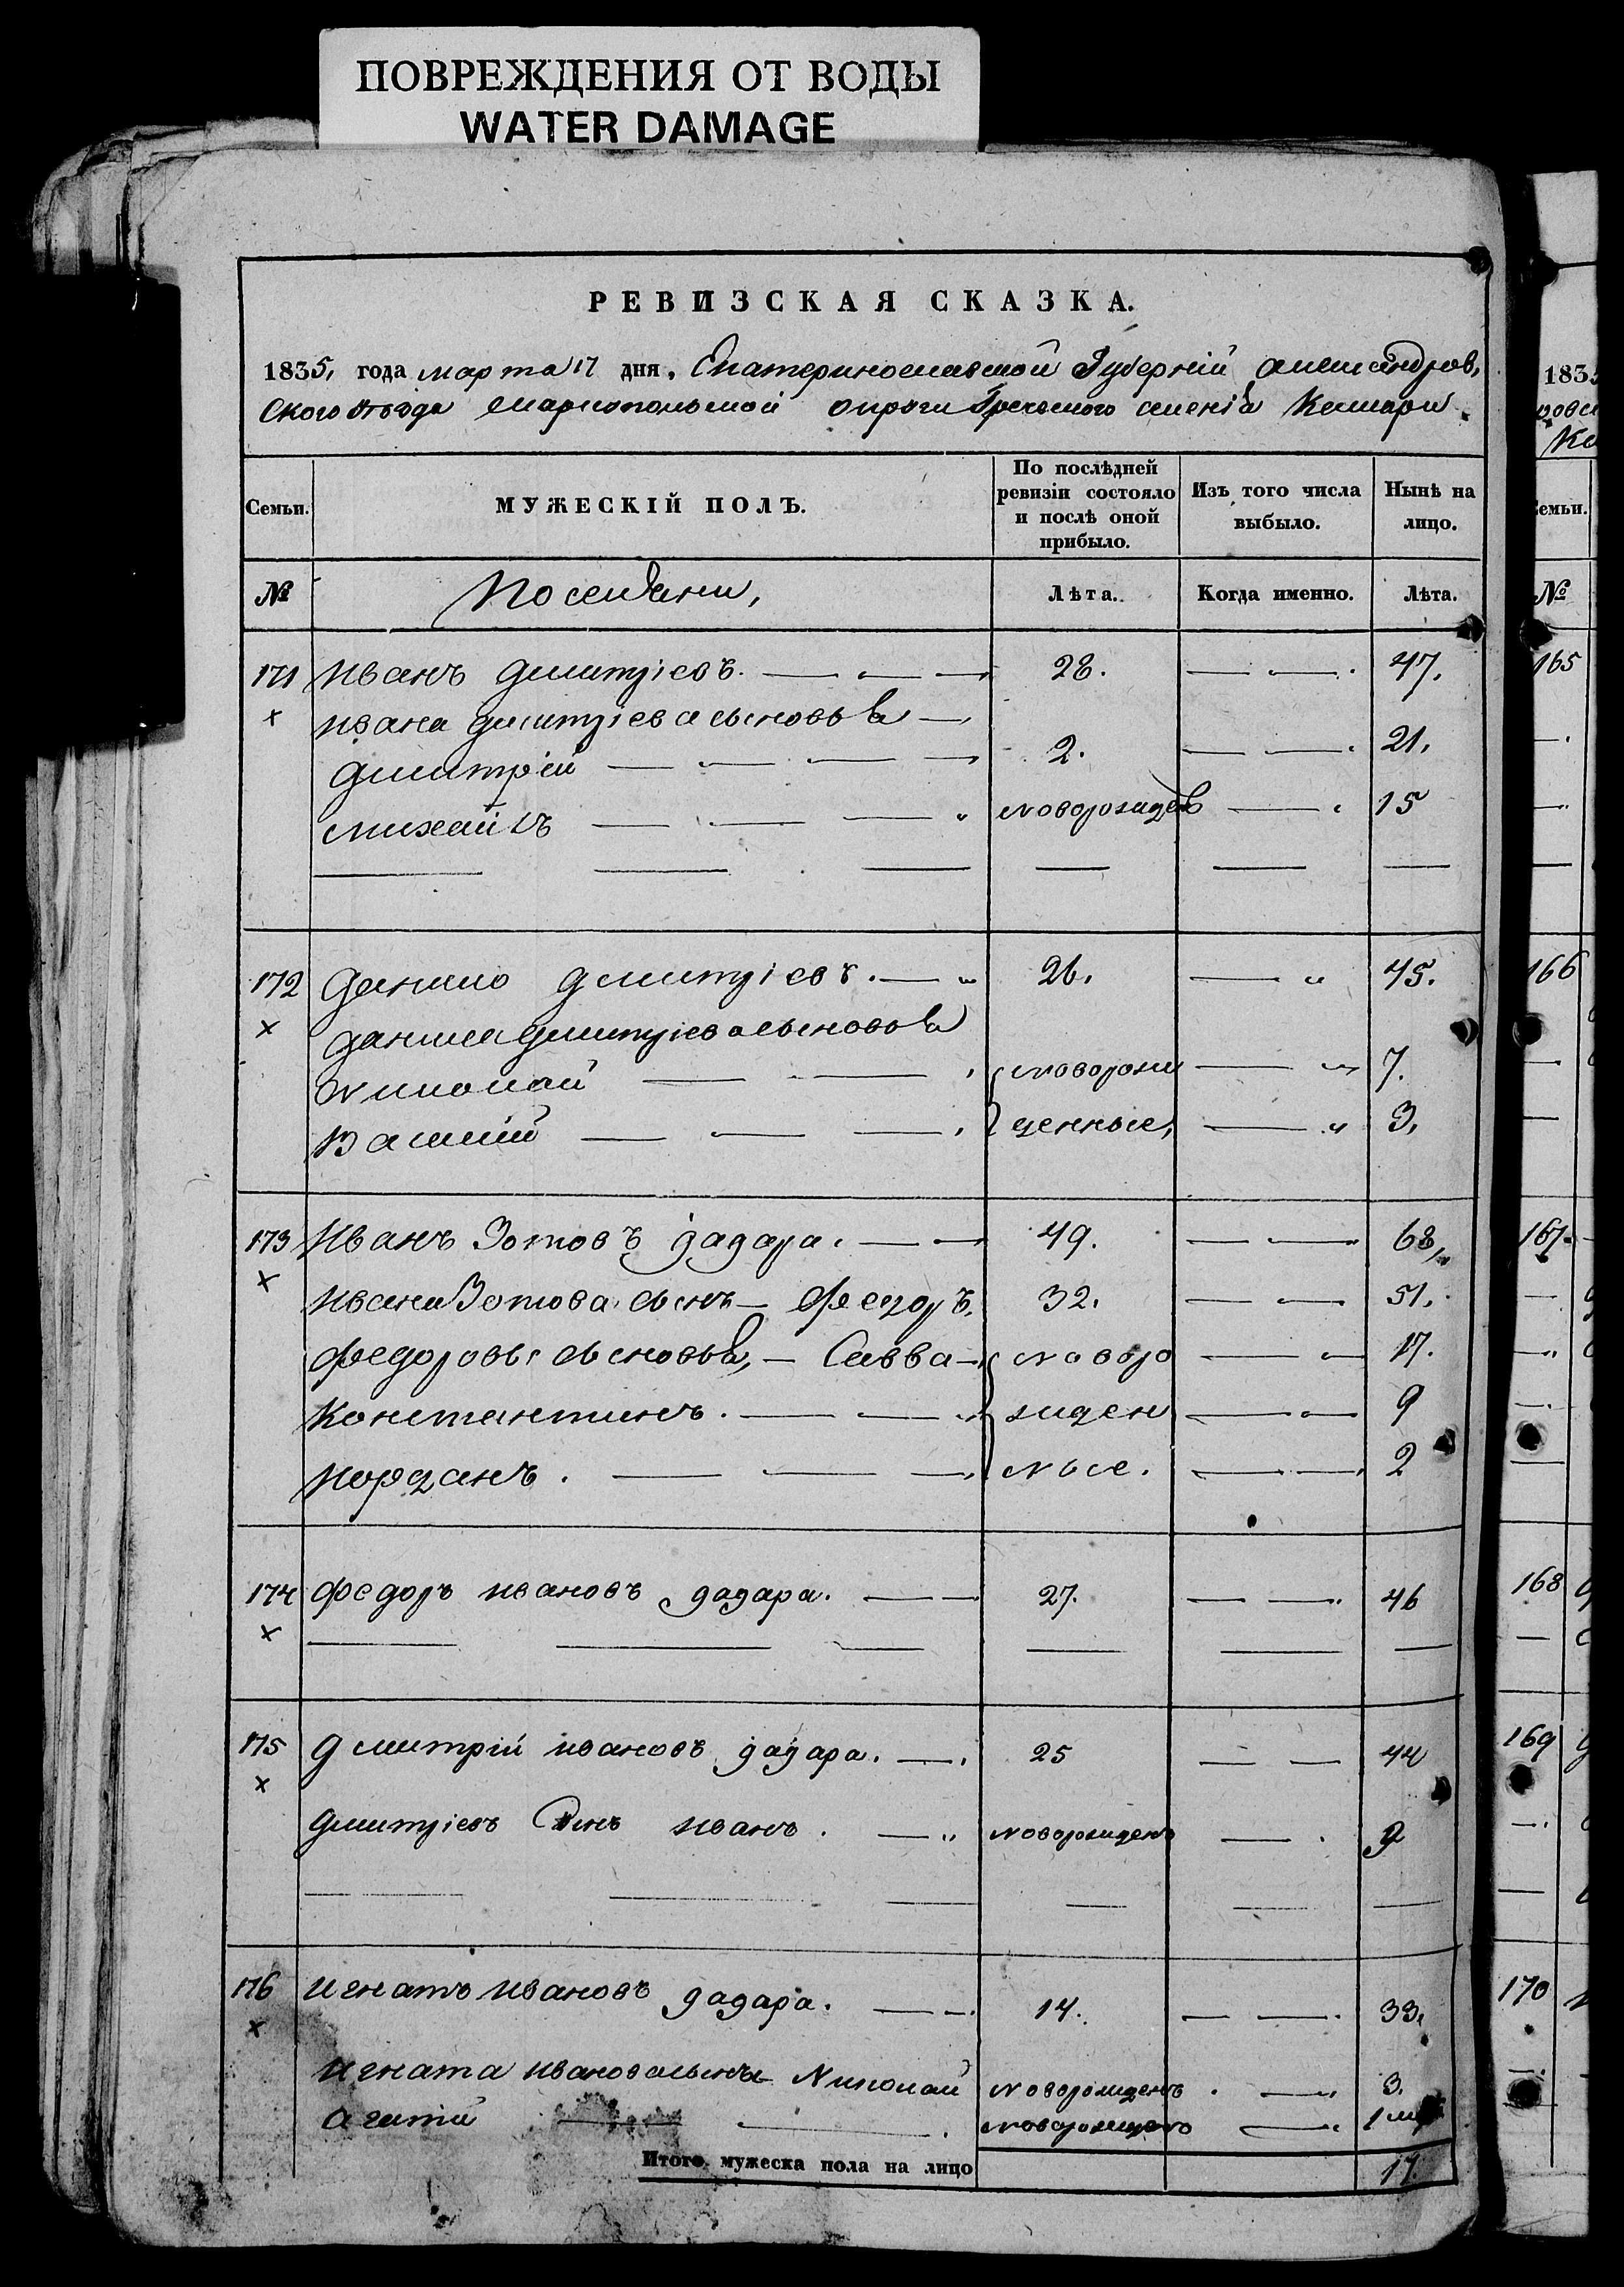 ПОВРЕЖДЕНИЯ ОТ ВОДЫ
WATER DAMAGE
РЕВИЗСКАЯ СКАЗКА.
1835, года марта 17 дня, Екатеринославской Губернiй, александров,
ского Уѣзда Марiопольской округи Греческого селенiя
Семьи. МУЖЕСКIЙ ПОЛЪ. По послѣдней ревизiи состояло и послѣ оной прибыло. Изъ того числа выбыло. Нынѣ на лицо.
№ Поселяни, Лѣта. Когда именно. Лѣта.
171 Иванъ Дмитрiевъ. 28. 47.
Ивана Дмитрiева сыновья
Дмитрiй 2. 21.
Михайлъ новорожден 15
172 Данило Дмитрiевъ. 26. 45.
Данила Дмитрiева сыновья
Николай новорож 7.
Василiй денные, 3.
173 Иванъ Зотовъ дадара. 49. 68,
Ивана Зотова сынъ Федоръ. 32. 51.
Федоровы сыновья, Савва новоро 17.
Константинъ. жден 9
Иорданъ. ные. 2
174 Федоръ Ивановъ дадара. 27. 46
175 Дмитрiй Ивановъ дадара. 25 44
Дмитрiевъ Сынъ Иванъ. новорожденъ 9
176 Игнатъ Ивановъ дадара. 14. 33.
Игната Иванова сынъ Николай новорожденъ 3.
новорожденъ 1
Итого мужеска пола на лицо 17.
1835
Ке
Семьи.
№
165
166
167.
168
169
170